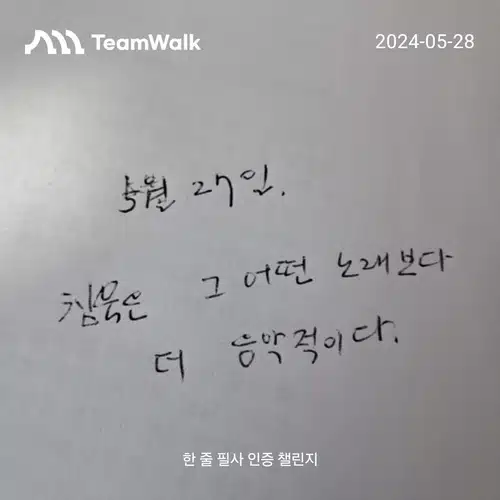 TeamWalk
2024-05-28
5월 27일.
침묵은 그 어떤 노래보다
더 음악적이다.
한 줄 필사 인증 챌린지